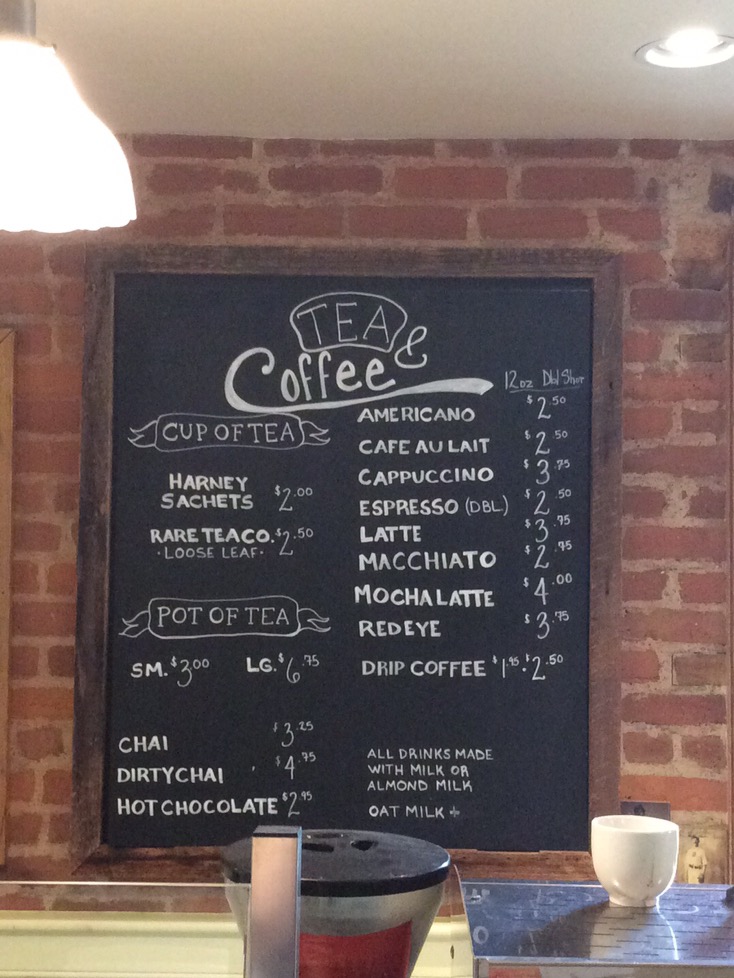 TEA &
Coffee
CUP OF TEA
HARNEY
SACHETS $2.00
RARE TEA CO. $2.50
• LOOSE LEAF •
POT OF TEA
SM. $3.00 LG. $6.75
CHAI $3.25
DIRTY CHAI $4.75
HOT CHOCOLATE $2.95
12oz Dbl Shot
AMERICANO $2.50
CAFE AU LAIT $2.50
CAPPUCCINO $3.75
ESPRESSO (DBL) $2.50
LATTE $3.75
MACCHIATO $2.75
MOCHA LATTE $4.00
REDEYE $3.75
DRIP COFFEE $1.95 • $2.50
ALL DRINKS MADE
WITH MILK OR
ALMOND MILK
OAT MILK +